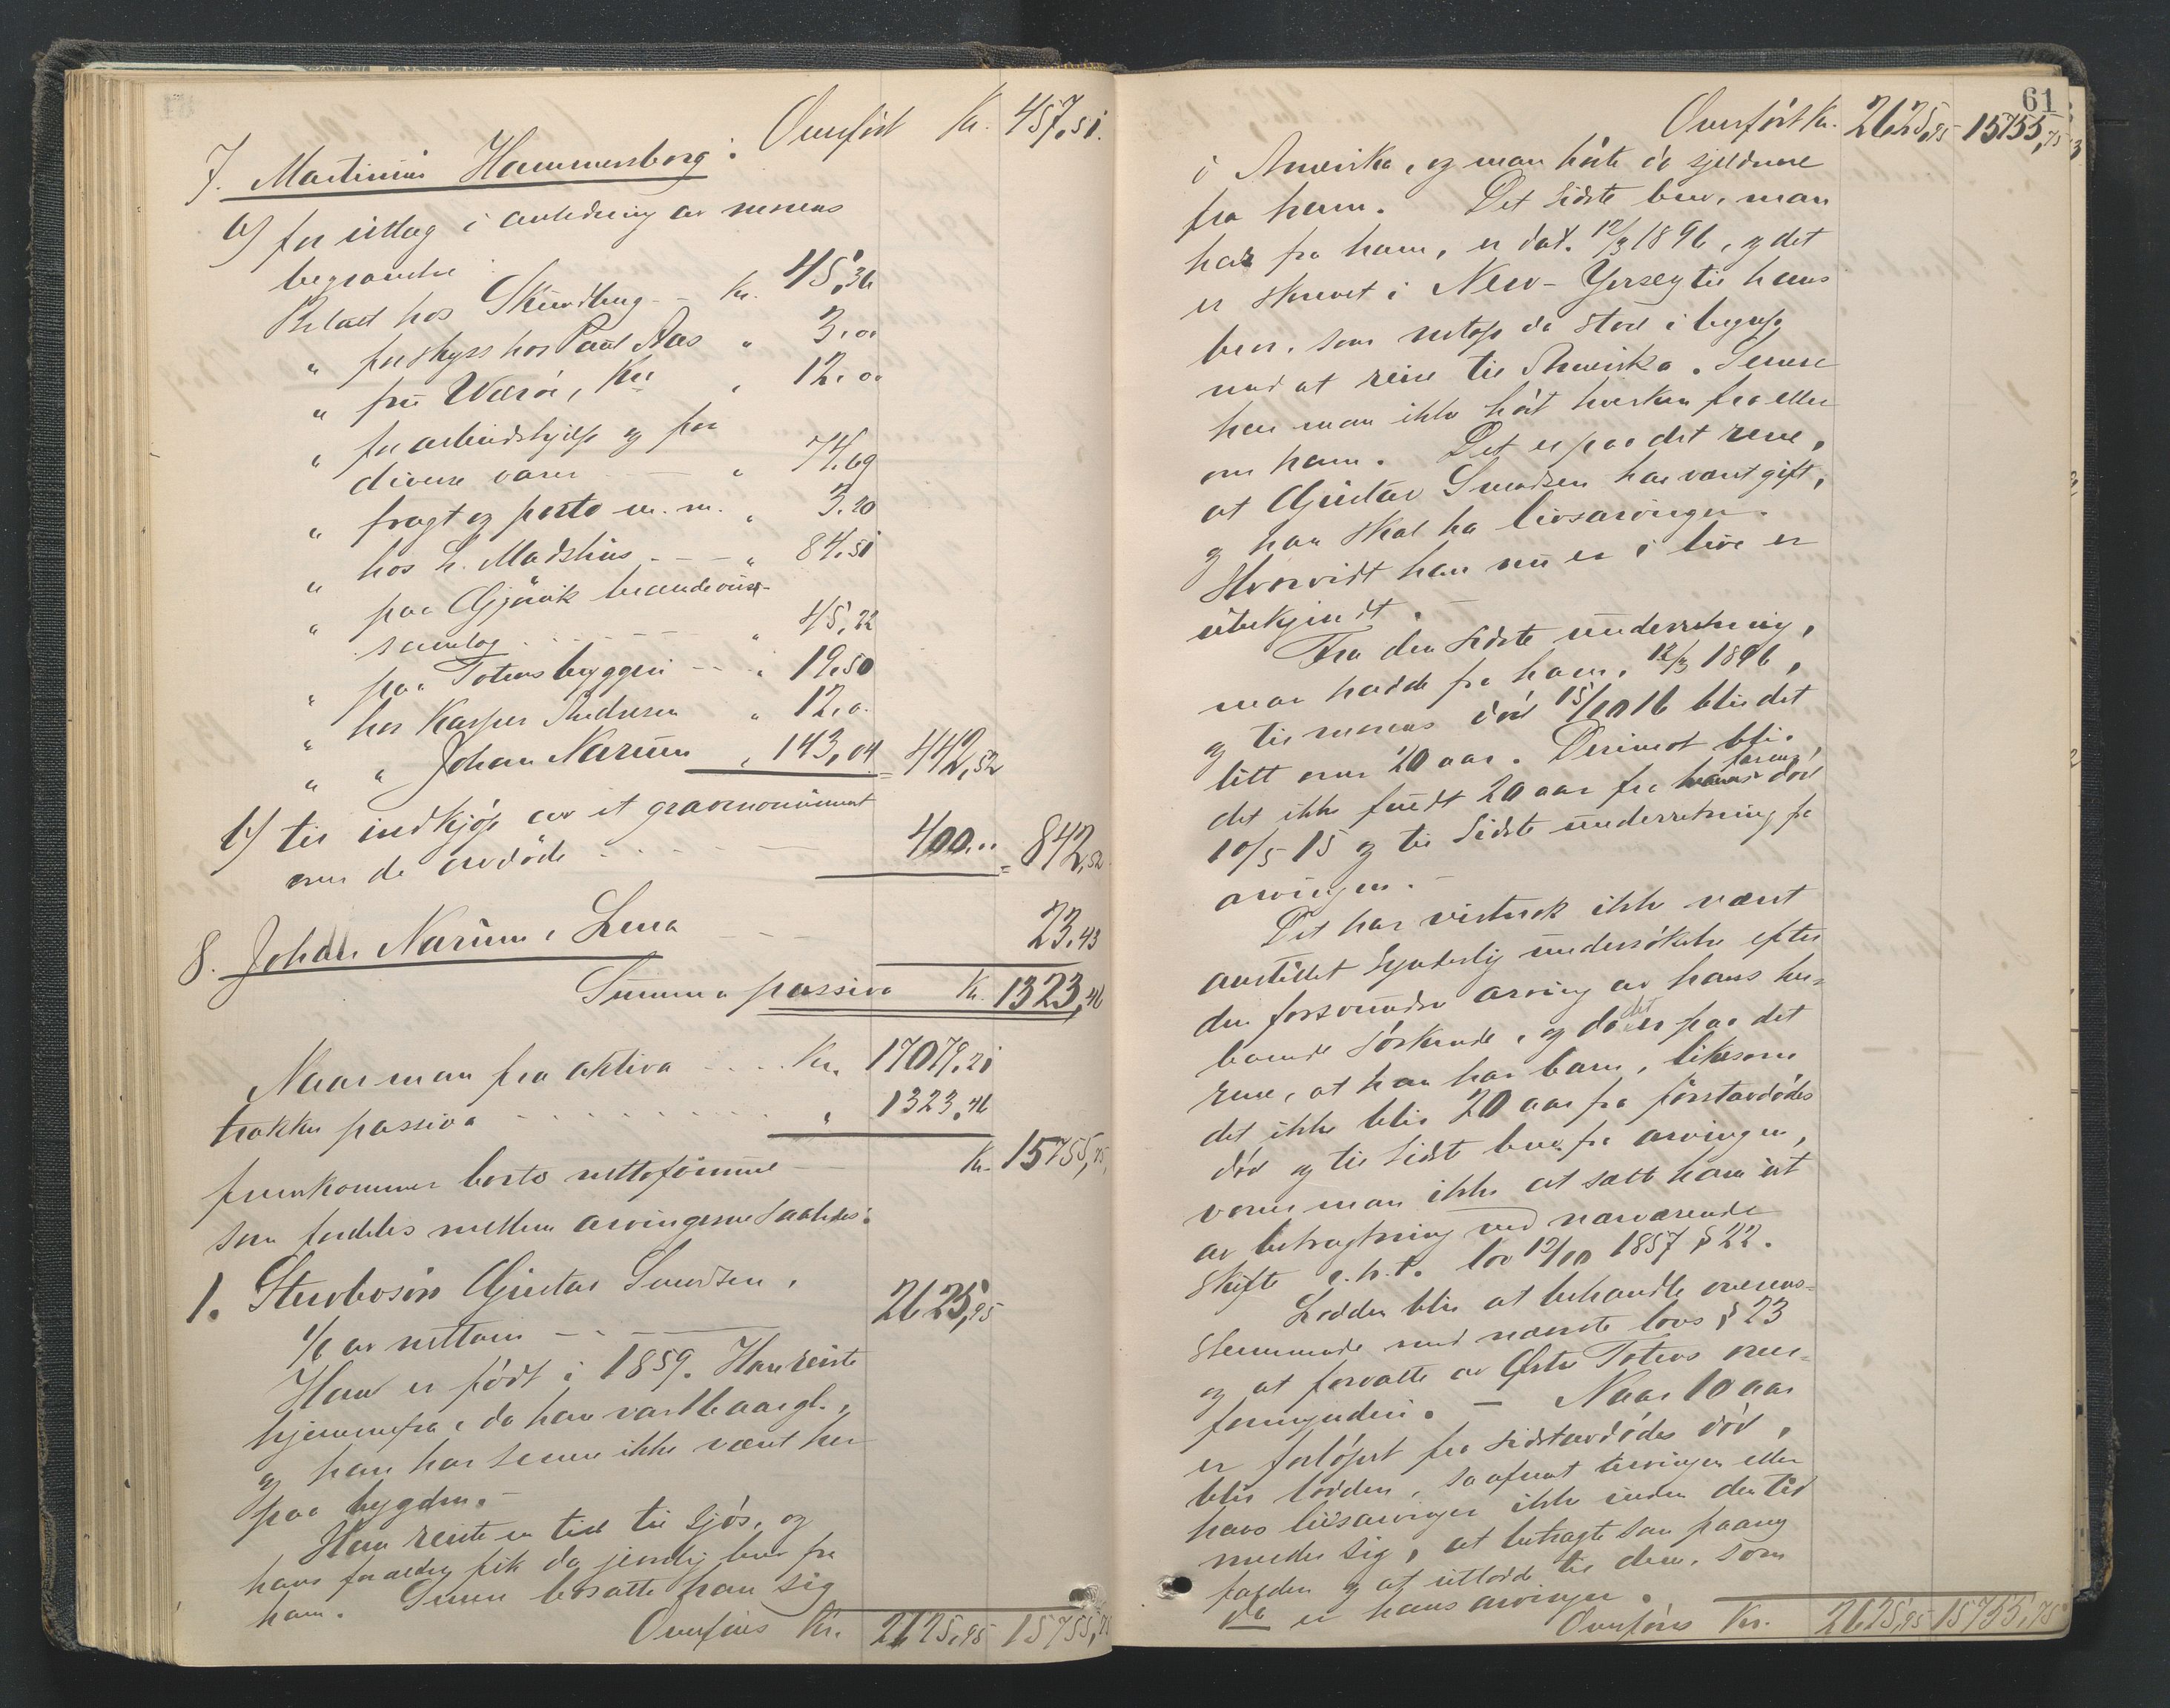 Overført Kr. 457,51.
7. Martinius Hammersborg:
a) for utlæg i anledning av morens
begravelse:
Betalt hos Skundberg - - Kr. 45,36
" for skyss hos Paul Aas " 3,00
" fru Værøe, Kra " 12,00
" for arbeidshjælp og for
diverse varer - " 74,69
" fragt og porto m. m. " 3,20
" hos L. Madshus - - - " 84,51
" paa Gjøvik brændevins-
samlag - - - " 45,22
" paa Totens bryggeri - - " 19,50
" hos Kasper Andresen " 12,0.
" " Johan Narum " 143,04 = 442,52
b) til indkjøp av et gravmonument
over de avdøde - - - 400,00 = 842,52
8. Johan Narum, Lena - - - 23,43
Summa passiva Kr. 1323,46
Naar man fra aktiva .... Kr. 17079,21
trækker passiva - - - - - " 1323,46
fremkommer boets nettoformue - Kr. 15755,75,
som fordeles mellem arvingerne saaledes:
1. Stervbosøn Gustav Svendsen,
1/6 av nettoen - - - 2625,95
Han er født i 1859. Han reiste
hjemmefra, da han var 16 aar gl.,
og han har senere ikke været her
paa bygden. -
Han reiste en tid til sjøs, og
hans forældre fik da jevnlig brev fra
ham. Senere bosatte han sig
Overføres Kr. 2625,95 15755,75
61
Overført Kr. 2625,95 15755,75
i Amerika, og man hørte da sjeldnere
fra ham. Det sidste brev, man
har fra ham, er dat. 12/3 1896, og det
er skrevet i New-Yersey til hans
bror, som netop da stod i begrep
med at reise til Amerika. Senere
har man ikke hørt hverken fra eller
om ham. Det er paa det rene,
at Gustav Svendsen har været gift,
og han skal ha livsarvinger.
Hvorvidt han nu er i live er
ubekjendt. -
Fra den sidste underretning,
man hadde fra ham, 12/3 1896,
og til morens død 15/10 16 blir det
litt over 20 aar. Derimot blir
det ikke fuldt 20 aar fra farens død
10/5 15 og til sidste underretning fra
arvingen. -
Det har vistnok ikke været
anstillet synderlig undersøkelse efter
den forsvundne arving av hans her-
boende søskende, og da det er paa det
rene, at han har barn, likesom
det ikke blir 20 aar fra førstavdødes
død og til sidst brev fra arvingen,
vover man ikke at sætte ham ut
av betragtning ved nærværende
skifte e. h. t. lov 12/10 1857 § 22.
Lodden blir at behandle overens-
stemmende med nævnte lovs § 23
og at forvalte av Østre Totens over-
formynderi. - Naar 10 aar
er forløpet fra sidstavdødes død,
blir lodden, saafremt arvingen eller
hans livsarvinger ikke inden den tid
melder sig, at betragte som paany
falden og at utlodde til dem, som
da er hans arvinger.
Overføres Kr. 2625,95 15755,75